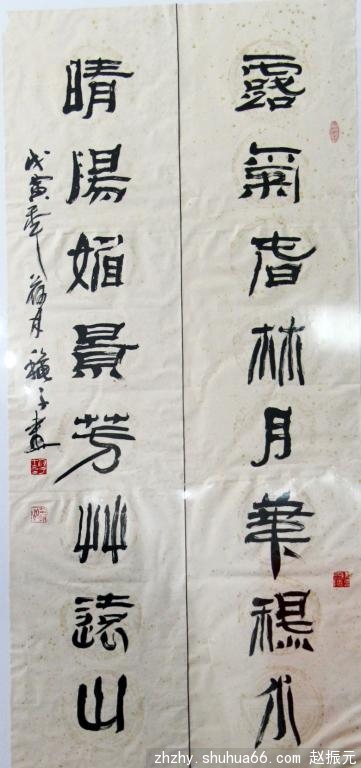 露氣旾林月華穐水
晴陽媚景芳艸遠山
戊寅年 月 子書
zhzhy.shuhua66.com 赵振元